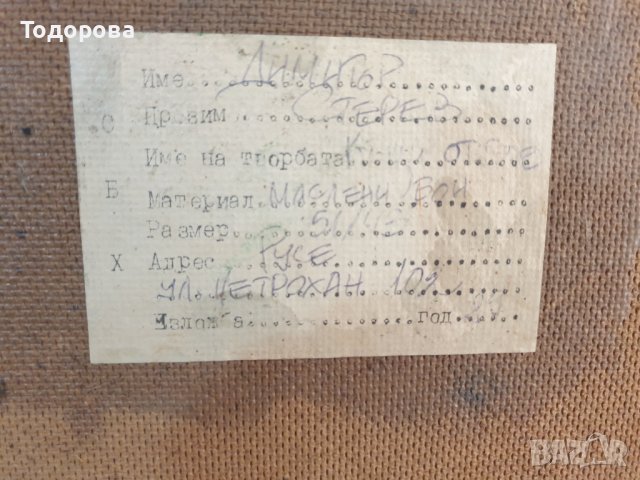 Тодорова
Име ДИМИТЪР
С Презим ТЕРЕЗ
Име на творбата К
Б Материал МАСЛЕНИ БОИ
Размер
Х Адрес РУСЕ
УЛ. ПЕТРОХАН 109
Изложба год.
BAZAR